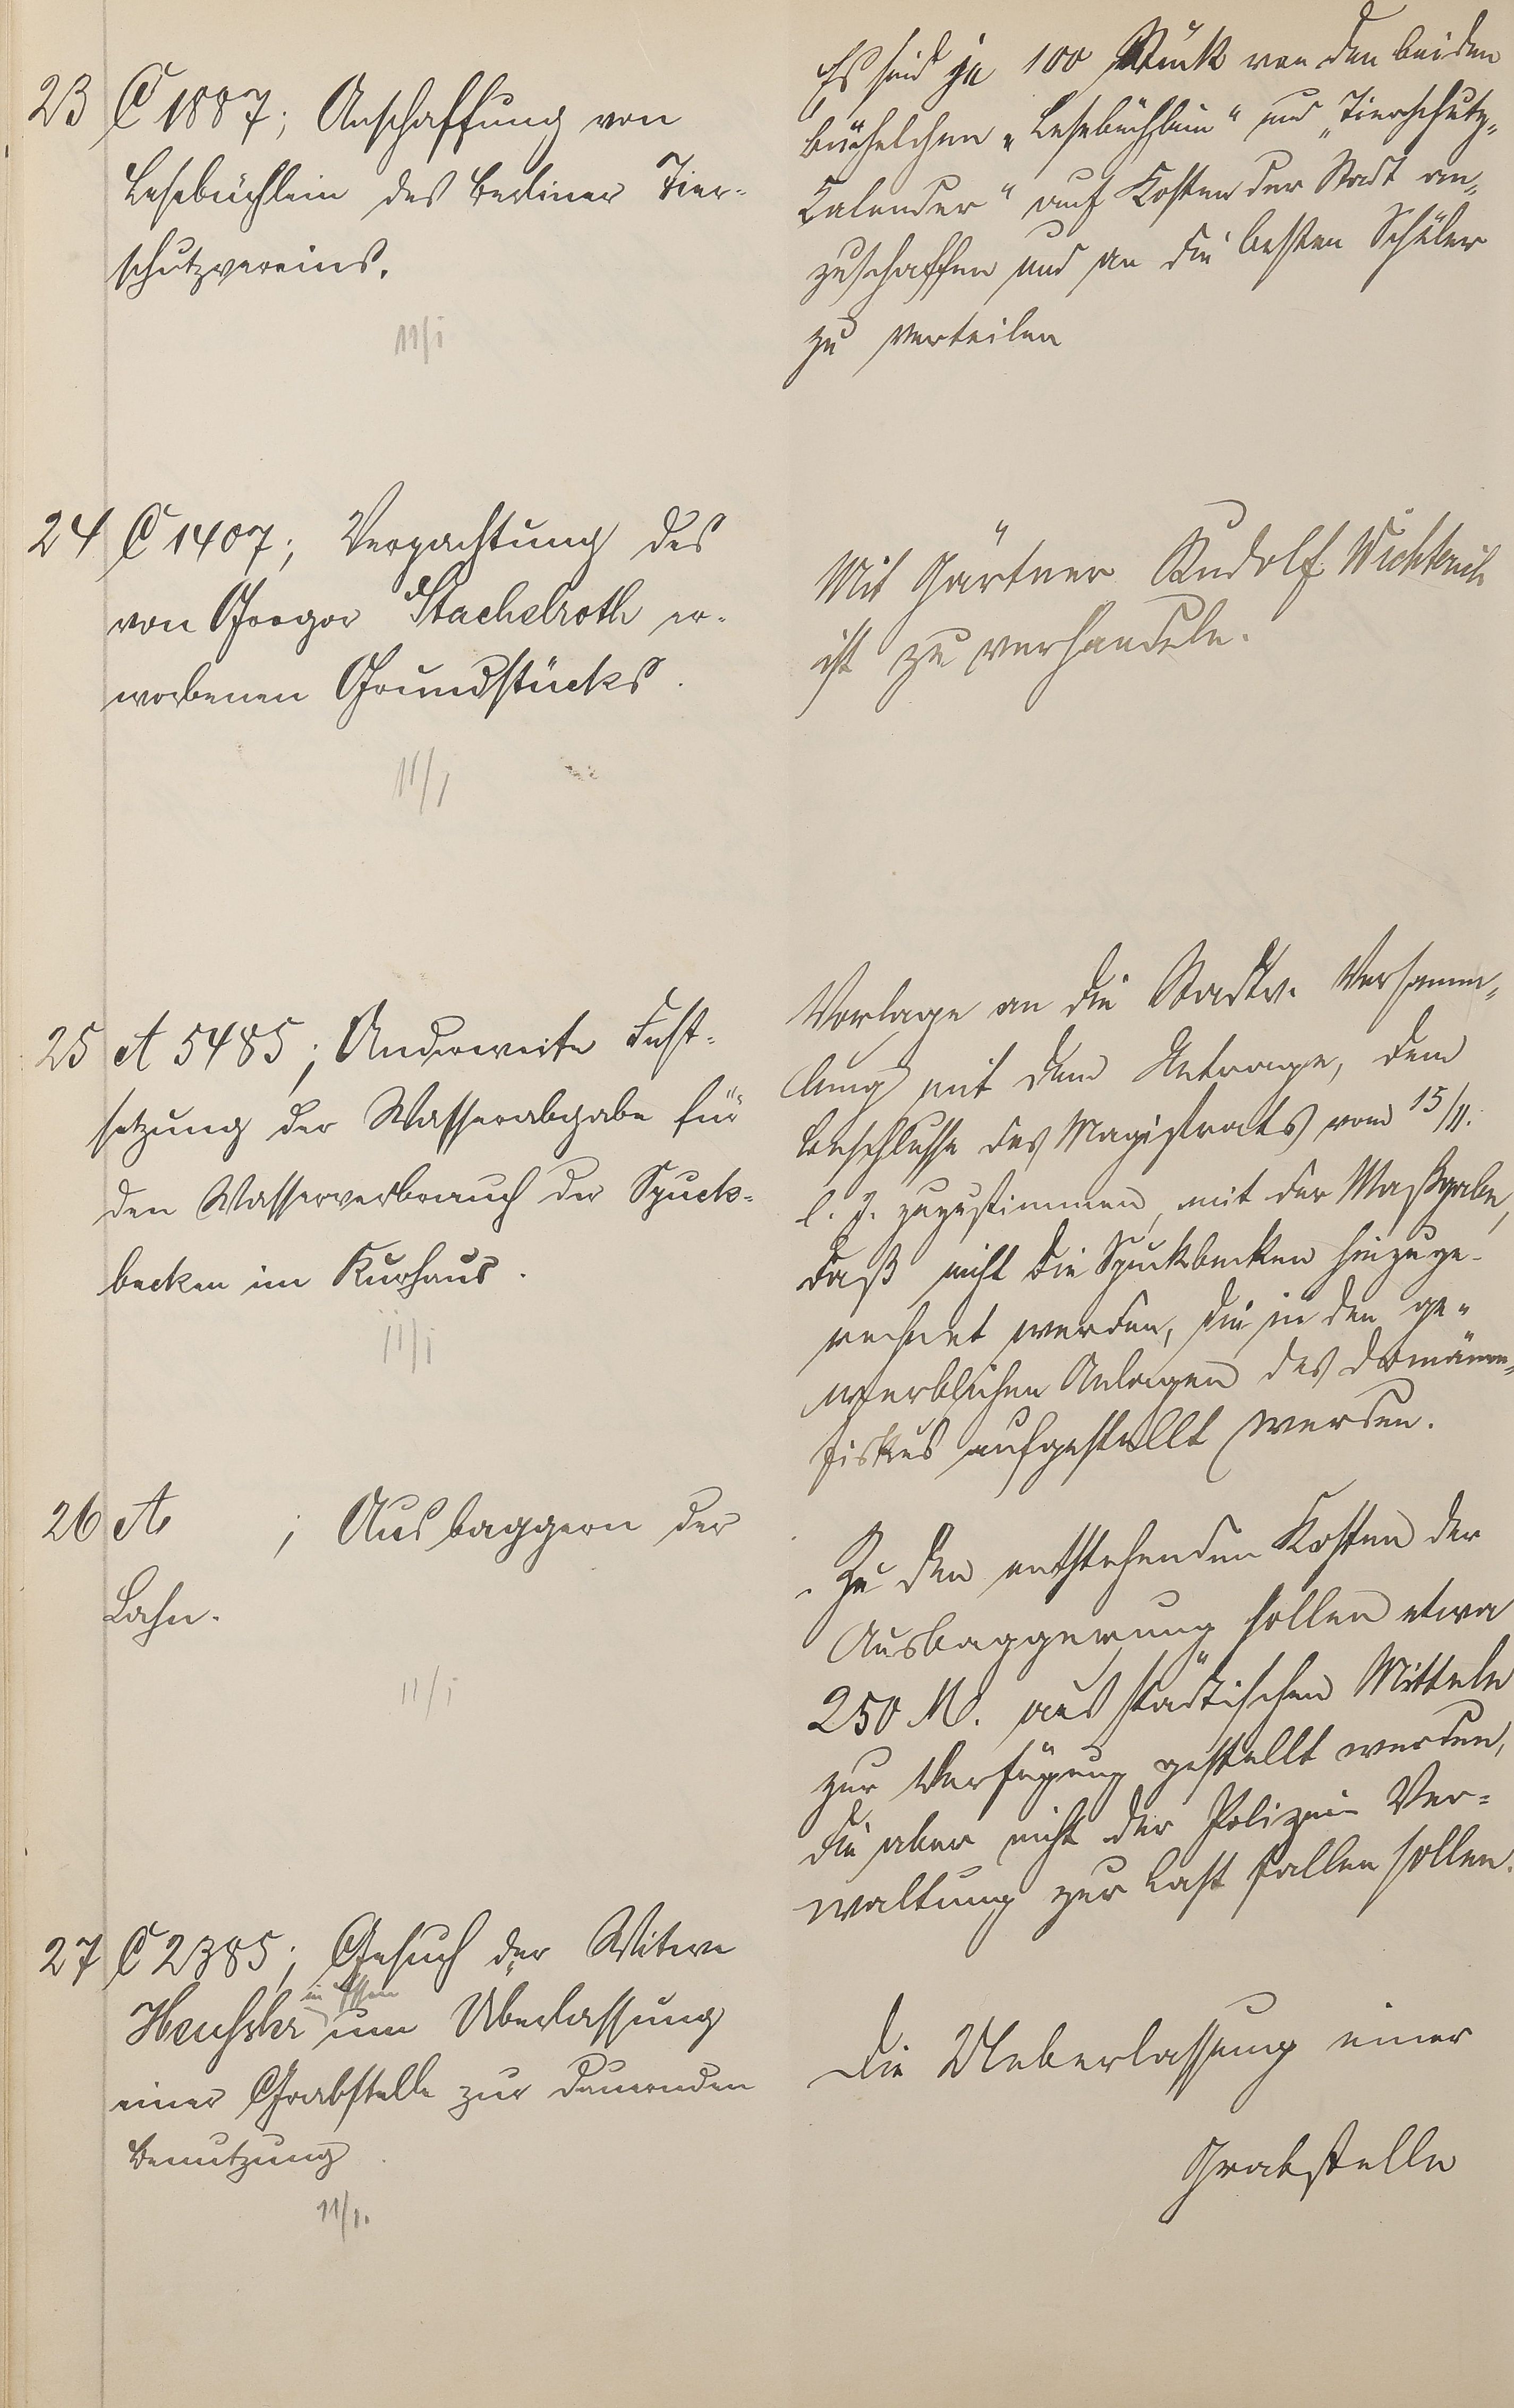 23 C 1887; Anschaffung von
Lesebüchlein des Berliner Tier-
schutzvereins.
11/I
Es sind je 100 Stück von den beiden
Büchelchen „Lesebüchlein" und „Tierschutz-
Kalender" auf Kosten der Stadt an-
zuschaffen und an die besten Schüler
zu verteilen
24 C 1407; Verpachtung des
von Gregor Stachelroth er-
worbenen Grundstücks.
11/I
Mit Gärtner Rudolf Wichterich
ist zu verhandeln.
25 A 5485; Anderweite Fest-
setzung der Wasserabgabe für
den Wasserverbrauch der Spuck-
becken im Kurhaus.
11/I
Vorlage an die Stadtv. Versamm-
lung mit dem Antrage, dem
Beschlusse des Magistrats vom 15/11.
l. J. zuzustimmen, mit der Maßgabe,
daß nicht die Spuckbecken hinzuge-
rechnet werden, die in den ge-
werblichen Anlagen des Domänen-
fiskus aufgestellt werden.
26 A ; Ausbaggern der
Lahn.
11/I
Zu den entstehenden Kosten der
Ausbaggerung sollen etwa
250 M. aus städtischen Mitteln
zur Verfügung gestellt werden,
die aber nicht der Polizei- Ver-
waltung zur Last fallen sollen.
27 C 2385; Gesuch der Witwe
in Essen
um Überlassung
einer Grabstelle zur dauernden
Benutzung.
11/I.
Die Ueberlassung einer
Grabstelle